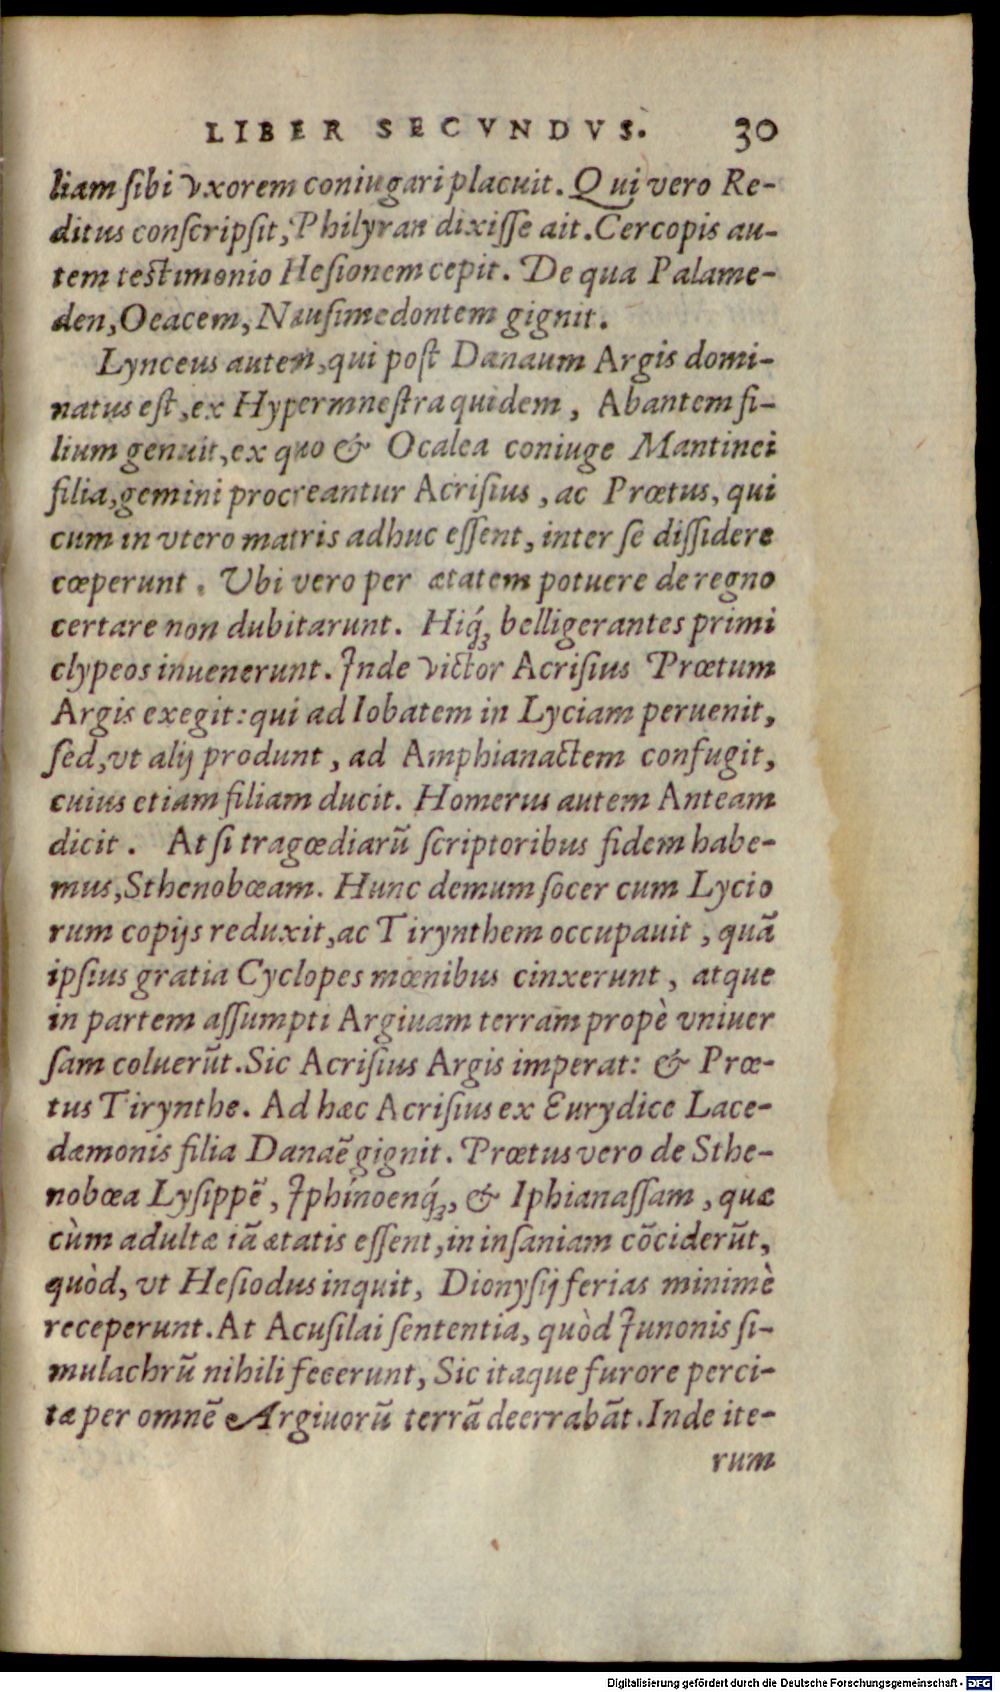 LIBER SECVNDVS. 30
liam ſibi vxorem coniugari placuit. Qui vero Re-
ditus conſcripſit, Philyran dixiſſe ait. Cercopis au-
tem teſtimonio Heſionem cepit. De qua Palame-
den, Oeacem, Nauſimedontem gignit.
Lynceus autem, qui poſt Danaum Argis domi-
natus eſt, ex Hypermneſtra quidem, Abantem fi-
lium genuit, ex quo & Ocalea coniuge Mantinei
filia, gemini procreantur Acriſius, ac Prœtus, qui
cum in vtero matris adhuc eſſent, inter ſe diſſidere
cœperunt. Vbi vero per ætatem potuere de regno
certare non dubitarunt. Hiq́ꝫ belligerantes primi
clypeos inuenerunt. Inde victor Acriſius Prœtum
Argis exegit: qui ad Iobatem in Lyciam peruenit,
ſed, vt alij produnt, ad Amphianactem confugit,
cuius etiam filiam ducit. Homerus autem Anteam
dicit. At ſi tragœdiarū ſcriptoribus fidem habe-
mus, Sthenobœam. Hunc demum ſocer cum Lycio
rum copijs reduxit, ac Tirynthem occupauit, quā
ipſius gratia Cyclopes mœnibus cinxerunt, atque
in partem aſſumpti Argiuam terram propè vniuer
ſam coluerūt. Sic Acriſius Argis imperat: & Prœ-
tus Tirynthe. Ad hæc Acriſius ex Eurydice Lace-
dæmonis filia Danaē gignit. Prœtus vero de Sthe-
nobœa Lyſippē, Iphinoenq́ꝫ, & Iphianaſſam, quæ
cùm adultæ iā ætatis eſſent, in inſaniam cōciderūt,
quòd, vt Heſiodus inquit, Dionyſij ferias minimè
receperunt. At Acuſilai ſententia, quòd Iunonis ſi-
mulachrū nihili fecerunt, Sic itaque furore perci-
tæ per omnē Argiuorū terrā deerrabāt. Inde ite-
rum
Digitalisierung gefördert durch die Deutsche Forschungsgemeinschaft - DFG